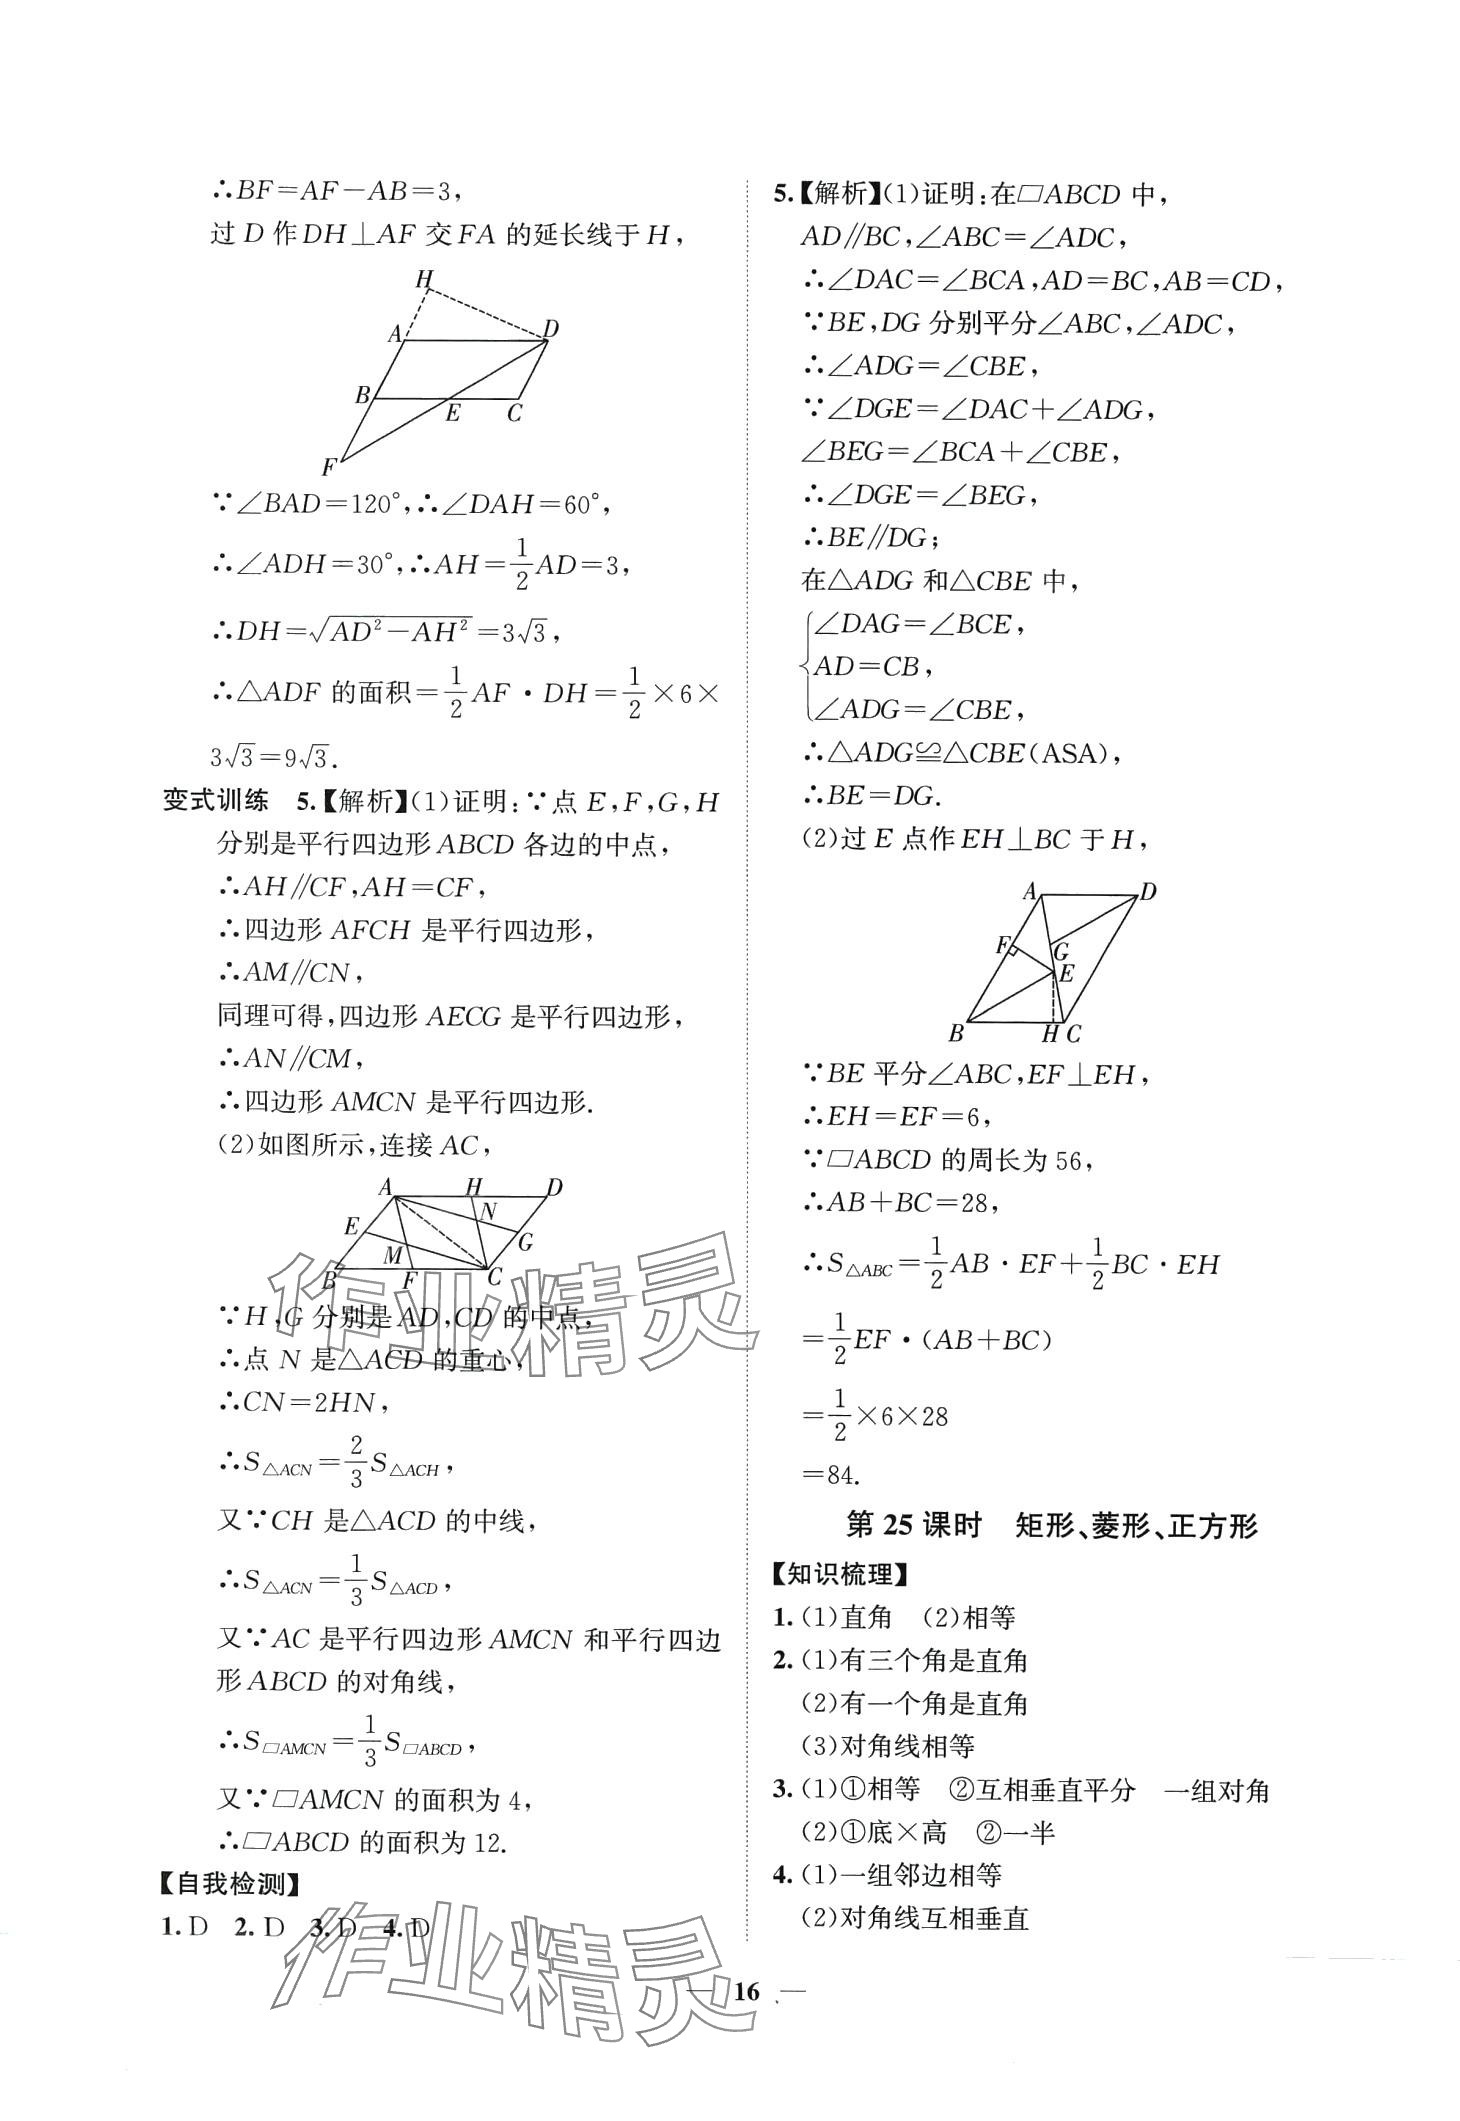 ∴BF=AF－AB=3,
过 D 作 DH⊥AF 交 FA 的延长线于 H,
H
A
D
B
E
C
F
∵∠BAD=120°,∴∠DAH=60°,
∴∠ADH=30°,∴AH=1/2AD=3,
∴DH=√(AD²－AH²)=3√3,
∴△ADF 的面积=1/2AF·DH=1/2×6×
3√3=9√3.
变式训练 5.【解析】(1)证明:∵点 E,F,G,H
分别是平行四边形 ABCD 各边的中点,
∴AH∥CF,AH=CF,
∴四边形 AFCH 是平行四边形,
∴AM∥CN,
同理可得,四边形 AECG 是平行四边形,
∴AN∥CM,
∴四边形 AMCN 是平行四边形.
(2)如图所示,连接 AC,
A
H
D
N
E
G
M
B
F
C
∵H,G 分别是 AD,CD 的中点,
∴点 N 是△ACD 的重心,
∴CN=2HN,
∴S△ACN=2/3S△ACH,
又∵CH 是△ACD 的中线,
∴S△ACN=1/3S△ACD,
又∵AC 是平行四边形 AMCN 和平行四边
形 ABCD 的对角线,
∴S□AMCN=1/3S□ABCD,
又∵□AMCN 的面积为 4,
∴□ABCD 的面积为 12.
【自我检测】
1. D 2. D 3. D 4. D
5.【解析】(1)证明:在□ABCD 中,
AD∥BC,∠ABC=∠ADC,
∴∠DAC=∠BCA,AD=BC,AB=CD,
∵BE,DG 分别平分∠ABC,∠ADC,
∴∠ADG=∠CBE,
∵∠DGE=∠DAC+∠ADG,
∠BEG=∠BCA+∠CBE,
∴∠DGE=∠BEG,
∴BE∥DG;
在△ADG 和△CBE 中,
∠DAG=∠BCE,
AD=CB,
∠ADG=∠CBE,
∴△ADG≌△CBE(ASA),
∴BE=DG.
(2)过 E 点作 EH⊥BC 于 H,
A
D
F
G
E
B
H
C
∵BE 平分∠ABC,EF⊥EH,
∴EH=EF=6,
∵□ABCD 的周长为 56,
∴AB+BC=28,
∴S△ABC=1/2AB·EF+1/2BC·EH
=1/2EF·(AB+BC)
=1/2×6×28
=84.
第 25 课时 矩形、菱形、正方形
【知识梳理】
1. (1)直角 (2)相等
2. (1)有三个角是直角
(2)有一个角是直角
(3)对角线相等
3. (1)①相等 ②互相垂直平分 一组对角
(2)①底×高 ②一半
4. (1)一组邻边相等
(2)对角线互相垂直
— 16 —
作业精灵
作业精灵